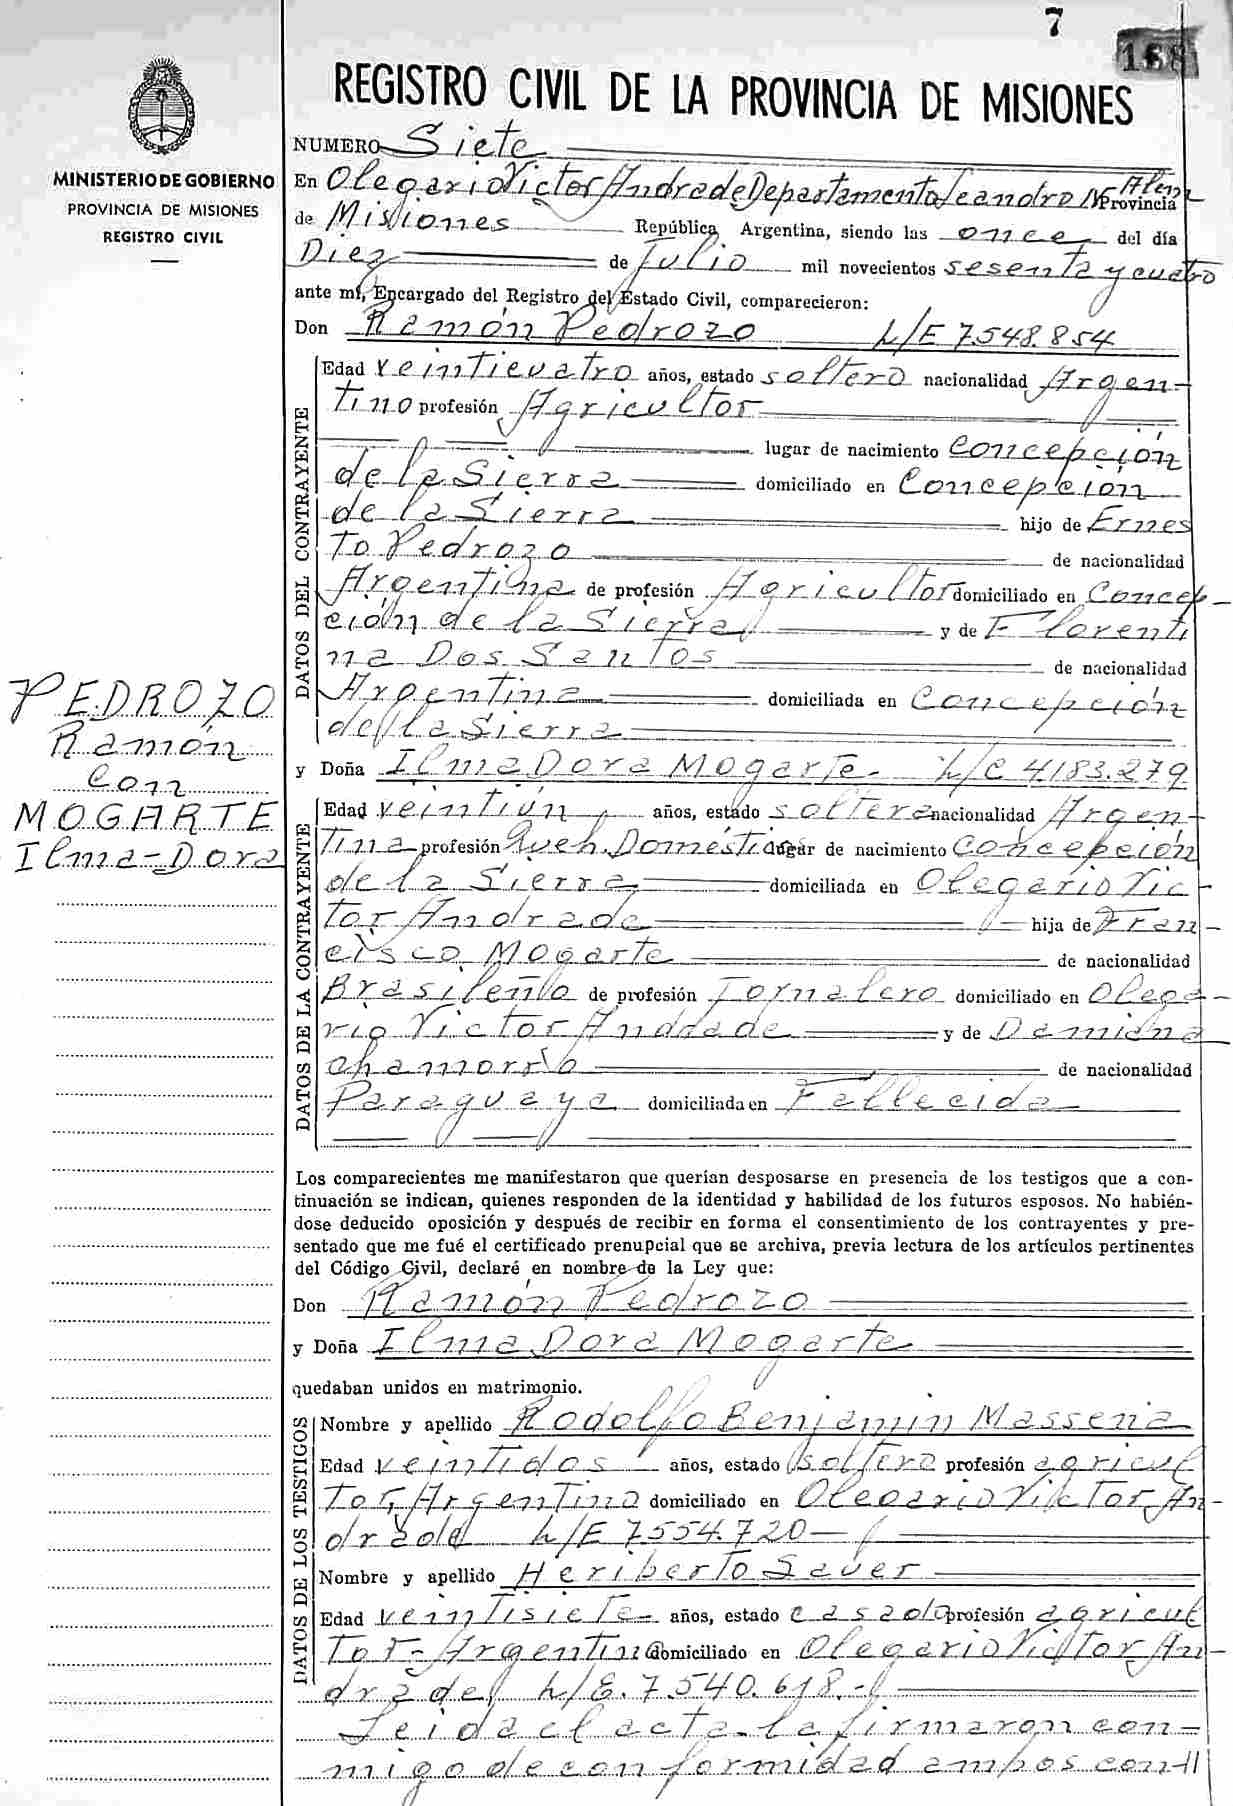 7
168
MINISTERIO DE GOBIERNO
PROVINCIA DE MISIONES
REGISTRO CIVIL
PEDROZO
Ramón
con
MOGARTE
Ilma-Dora
REGISTRO CIVIL DE LA PROVINCIA DE MISIONES
NUMERO Siete
En Olegario Victor Andrade Departamento Leandro N. Alem Provincia
de Misiones República Argentina, siendo las once, del día
Diez de Julio mil novecientos sesenta y cuatro
ante mí, Encargado del Registro del Estado Civil, comparecieron:
Don Ramón Pedrozo L/E 7.548.854
DATOS DEL CONTRAYENTE
Edad veinticuatro años, estado soltero nacionalidad Argen-
tino profesión Agricultor
lugar de nacimiento Concepción
de la Sierra domiciliado en Concepción
de la Sierra hijo de Ernes
to Pedrozo de nacionalidad
Argentina de profesión Agricultor domiciliado en Concep-
ción de la Sierra y de Florenti
na Dos Santos de nacionalidad
Argentina domiciliada en Concepción
de la Sierra
y Doña Ilma Dora Mogarte- L/C 4.183.279
DATOS DE LA CONTRAYENTE
Edad veintiún, años, estado soltera nacionalidad Argen-
tina profesión Queh. Domésticos lugar de nacimiento Concepción
de la Sierra, domiciliada en Olegario Vic-
tor Andrade hija de Fran-
cisco Mogarte de nacionalidad
Brasileño de profesión Jornalero domiciliado en Olega-
rio Victor Andrade y de Damiana
chamorro de nacionalidad
Paraguaya domiciliada en Fallecida
Los comparecientes me manifestaron que querían desposarse en presencia de los testigos que a con-
tinuación se indican, quienes responden de la identidad y habilidad de los futuros esposos. No habién-
dose deducido oposición y después de recibir en forma el consentimiento de los contrayentes y pre-
sentado que me fué el certificado prenupcial que se archiva, previa lectura de los artículos pertinentes
del Código Civil, declaré en nombre de la Ley que:
Don Ramón Pedrozo
y Doña Ilma Dora Mogarte
quedaban unidos en matrimonio.
DATOS DE LOS TESTIGOS
Nombre y apellido Rodolfo Benjamin Massena
Edad veintidos años, estado soltero profesión agricul
tor, Argentino domiciliado en Olegario Victor An-
drade L/E 7.554.720-
Nombre y apellido Heriberto Sauer
Edad veintisiete- años, estado casado profesión agricul
tor-Argentino domiciliado en Olegario Victor An-
drade L/E. 7.540.618.-
Leida el acta-la firmaron con-
migo de conformidad ambos con-